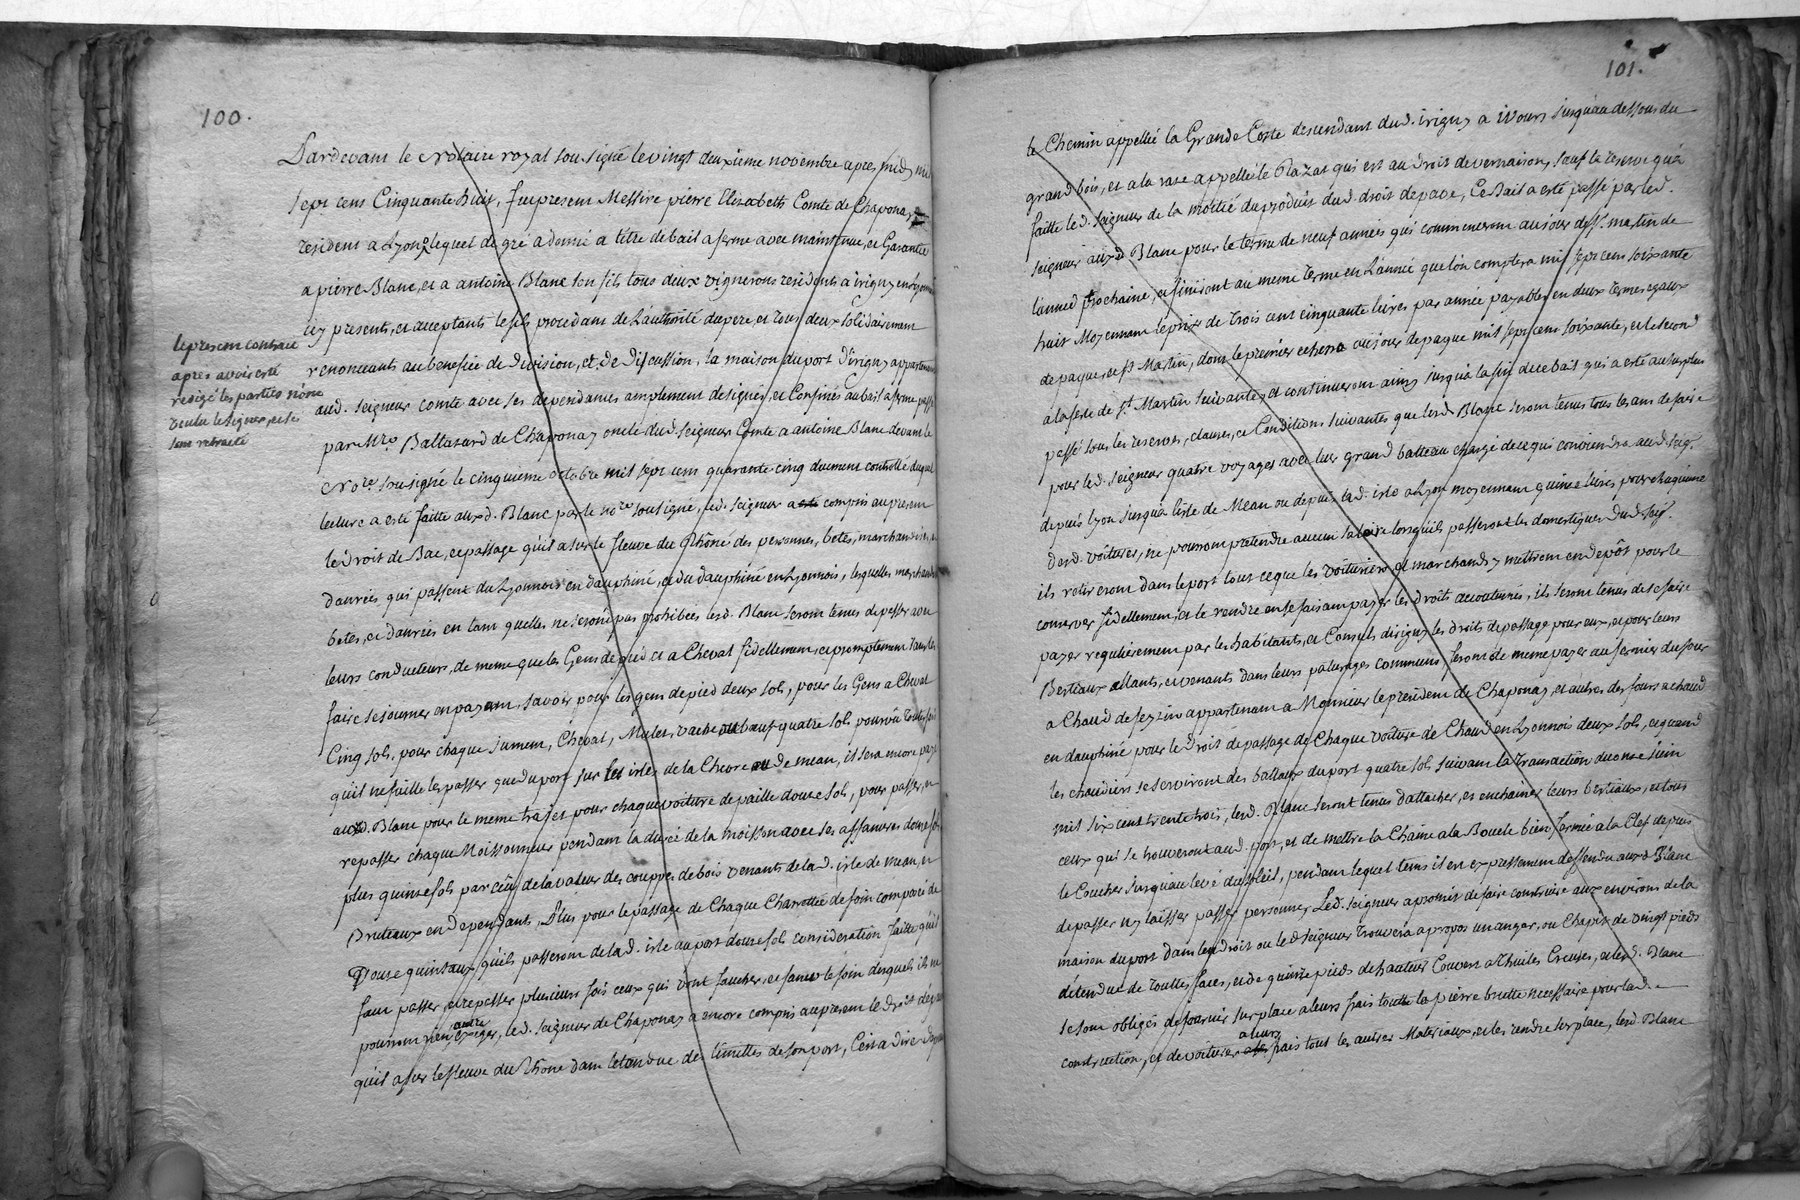 100.
Pardevant le Notaire royal sousigné le vingt deuxieme novembre apres midy mil
sept cens Cinquante huit, fut present Messire pierre Elizabeth Comte de Chaponay
resident a Lyon lequel de gré a donné a titre de bail a ferme avec maintenue, et Garantie
a pierre Blanc, et a antoine Blanc son fils tous deux vignerons residents a irigny en lyonnois
icy presents, et acceptants le fils procedant de L'authorité du pere, et tous deux solidairement
renoncants au benefice de division, et de discussion, la maison du port d'irigny appartenant
aud. seigneur comte avec ses dependances amplement designés, et Confinés au bail a ferme passé
par Mre. Baltazard de Chaponay oncle dud. seigneur Comte a antoine Blanc devant le
Nore. sousigné le cinquieme octobre mil sept cent quarante cinq duement controllé duquel
lecture a esté faitte auxd. Blanc par le nore sousigné, led. seigneur a compris au present
le droit de Bac, et passage qu'il a sur le fleuve du Rhône des personnes, betes, marchandises, et
danrées qui passent du Lyonnois en dauphiné, et du dauphiné en Lyonnois, lesquelles marchandises
betes, et danrées en tant quelles ne seront pas prohibées lesd. Blanc seront tenus de passer avec
leurs conducteurs, de meme que les Gens de pied et a Cheval fidellement, et promptement sans les
faire sejourner en payant, savoir pour les gens de pied deux sols, pour les Gens a Cheval
Cinq sols, pour chaque jument, Cheval, Mulet, vache ou bœuf quatre sols pourvû toutefois
qu'il ne faille les passer que du port sur les isles de la Chevre ou de mean, il sera encore payé
auxd. Blanc pour le meme trajet pour chaque voiture de paille douze sols, pour passer, et
repasser chaque Moissonneur pendant la durée de la moisson avec ses affanures douze sols
plus quinze sols par écu de la valeur des couppes de bois venants de lad. isle de mean, et
Bruteaux en dependant, Plus pour le passage de Chaque Charrettée de foin composé de
Douze quintaux qu'ils passeront de lad. isle au port douze sols consideration faitte qu'il
faut passer, et repasser plusieurs fois ceux qui vont faucher, et faner le foin desquels ils ne
pourront rien autre exiger, led. seigneur de Chaponay a encore compris au present le droit
qu'il a sur le fleuve du Rhône dans l'etendue des limittes de son port, C'est a dire depuis
le present contract
apres avoir esté
redigé les parties n'ont
voulu le signer, et se
sont retraité
101.
le Chemin appellée la Grande Coste descendant dud. irigny a ivours jusqu'au dessous du
grand bois, et a la rase appellée le Razat qui est au droit de vernaison, sauf la reserve qu'a
faitte led. seigneur de la moitié du produit dud. droit, Ce Bail a esté passé par led.
seigneur auxd Blanc pour le terme de neuf années qui commenceront au jour de st. martin de
l'année prochaine, et finiront au meme terme en L'année que l'on comptera mil sept cent soixante
huit Moyennant le prix de Trois cent cinquante livres par année payables en deux termes egaux
de paques, et st Martin, dont le premier echerra au jour de paque mil sept cent soixante, et le second
a la feste de st. Martin suivante, et continueront ainsy jusqu'a la fin du ce bail qui a esté au surplus
passé sous les reserves, clauses, et Conditions suivantes que lesd Blanc seront tenus tous les ans de faire
pour led. seigneur quatre voyages avec leur grand batteau chargé de ce qui conviendra aud. seigr.
depuis lyon jusqu'a l'isle de Mean ou depuis lad. isle a Lyon moyennant quinze livres pour chaqu'une
desd. voitures, ne pourront pretendre aucun salaire lorsqu'ils passeront les domestiques dud. seigr.
ils retireront dans le port tout ce que les voituriers et marchands y mettront en depôt pour le
conserver fidellement, et le rendre en se faisant payer les droits accoutumés, ils seront tenus de se faire
payer regulierement par les habitants, et Consuls d'irigny les droits de passage pour eux, et pour leurs
Bestiaux allants, et venants dans leurs paturages communs, seront de meme payer au fermier du four
a Chaud de sezzin appartenant a Monsieur le president de Chaponay, et autres des fours a chaud
en dauphiné pour le Droit de passage de Chaque voiture de Chaud en Lyonnois deux sols, et quand
les chaudiers se serviront des batteaux du port quatre sols suivant la Transaction du onze juin
mil six cent trente trois, lesd. Blanc seront tenus d'attacher, et enchainer leurs bestiaux, et tous
ceux qui se trouveront aud. port, et de mettre la Chaine a la Boucle bien fermée a la Clef depuis
le Coucher jusqu'au levé du soleil, pendant lequel tems il est expressement deffendu auxd Blanc
de passer ny laisser passer personne, Led. seigneur a promit de faire construire aux environs de la
maison du port dans l'endroit ou led seigneur trouvera a propos un angar, ou Chapit de vingt pieds
d'etendue de Touttes faces, et de quinze pieds de hauteur Couvert a Thuiles Creuses, et lesd. Blanc
se sont obligés de fournir sur place a leurs frais toutte la pierre brutte necessaire pour lad.
construction, et de voiturer a leurs frais tout les autres Materiaux, et les rendre sur place, lesd. Blanc